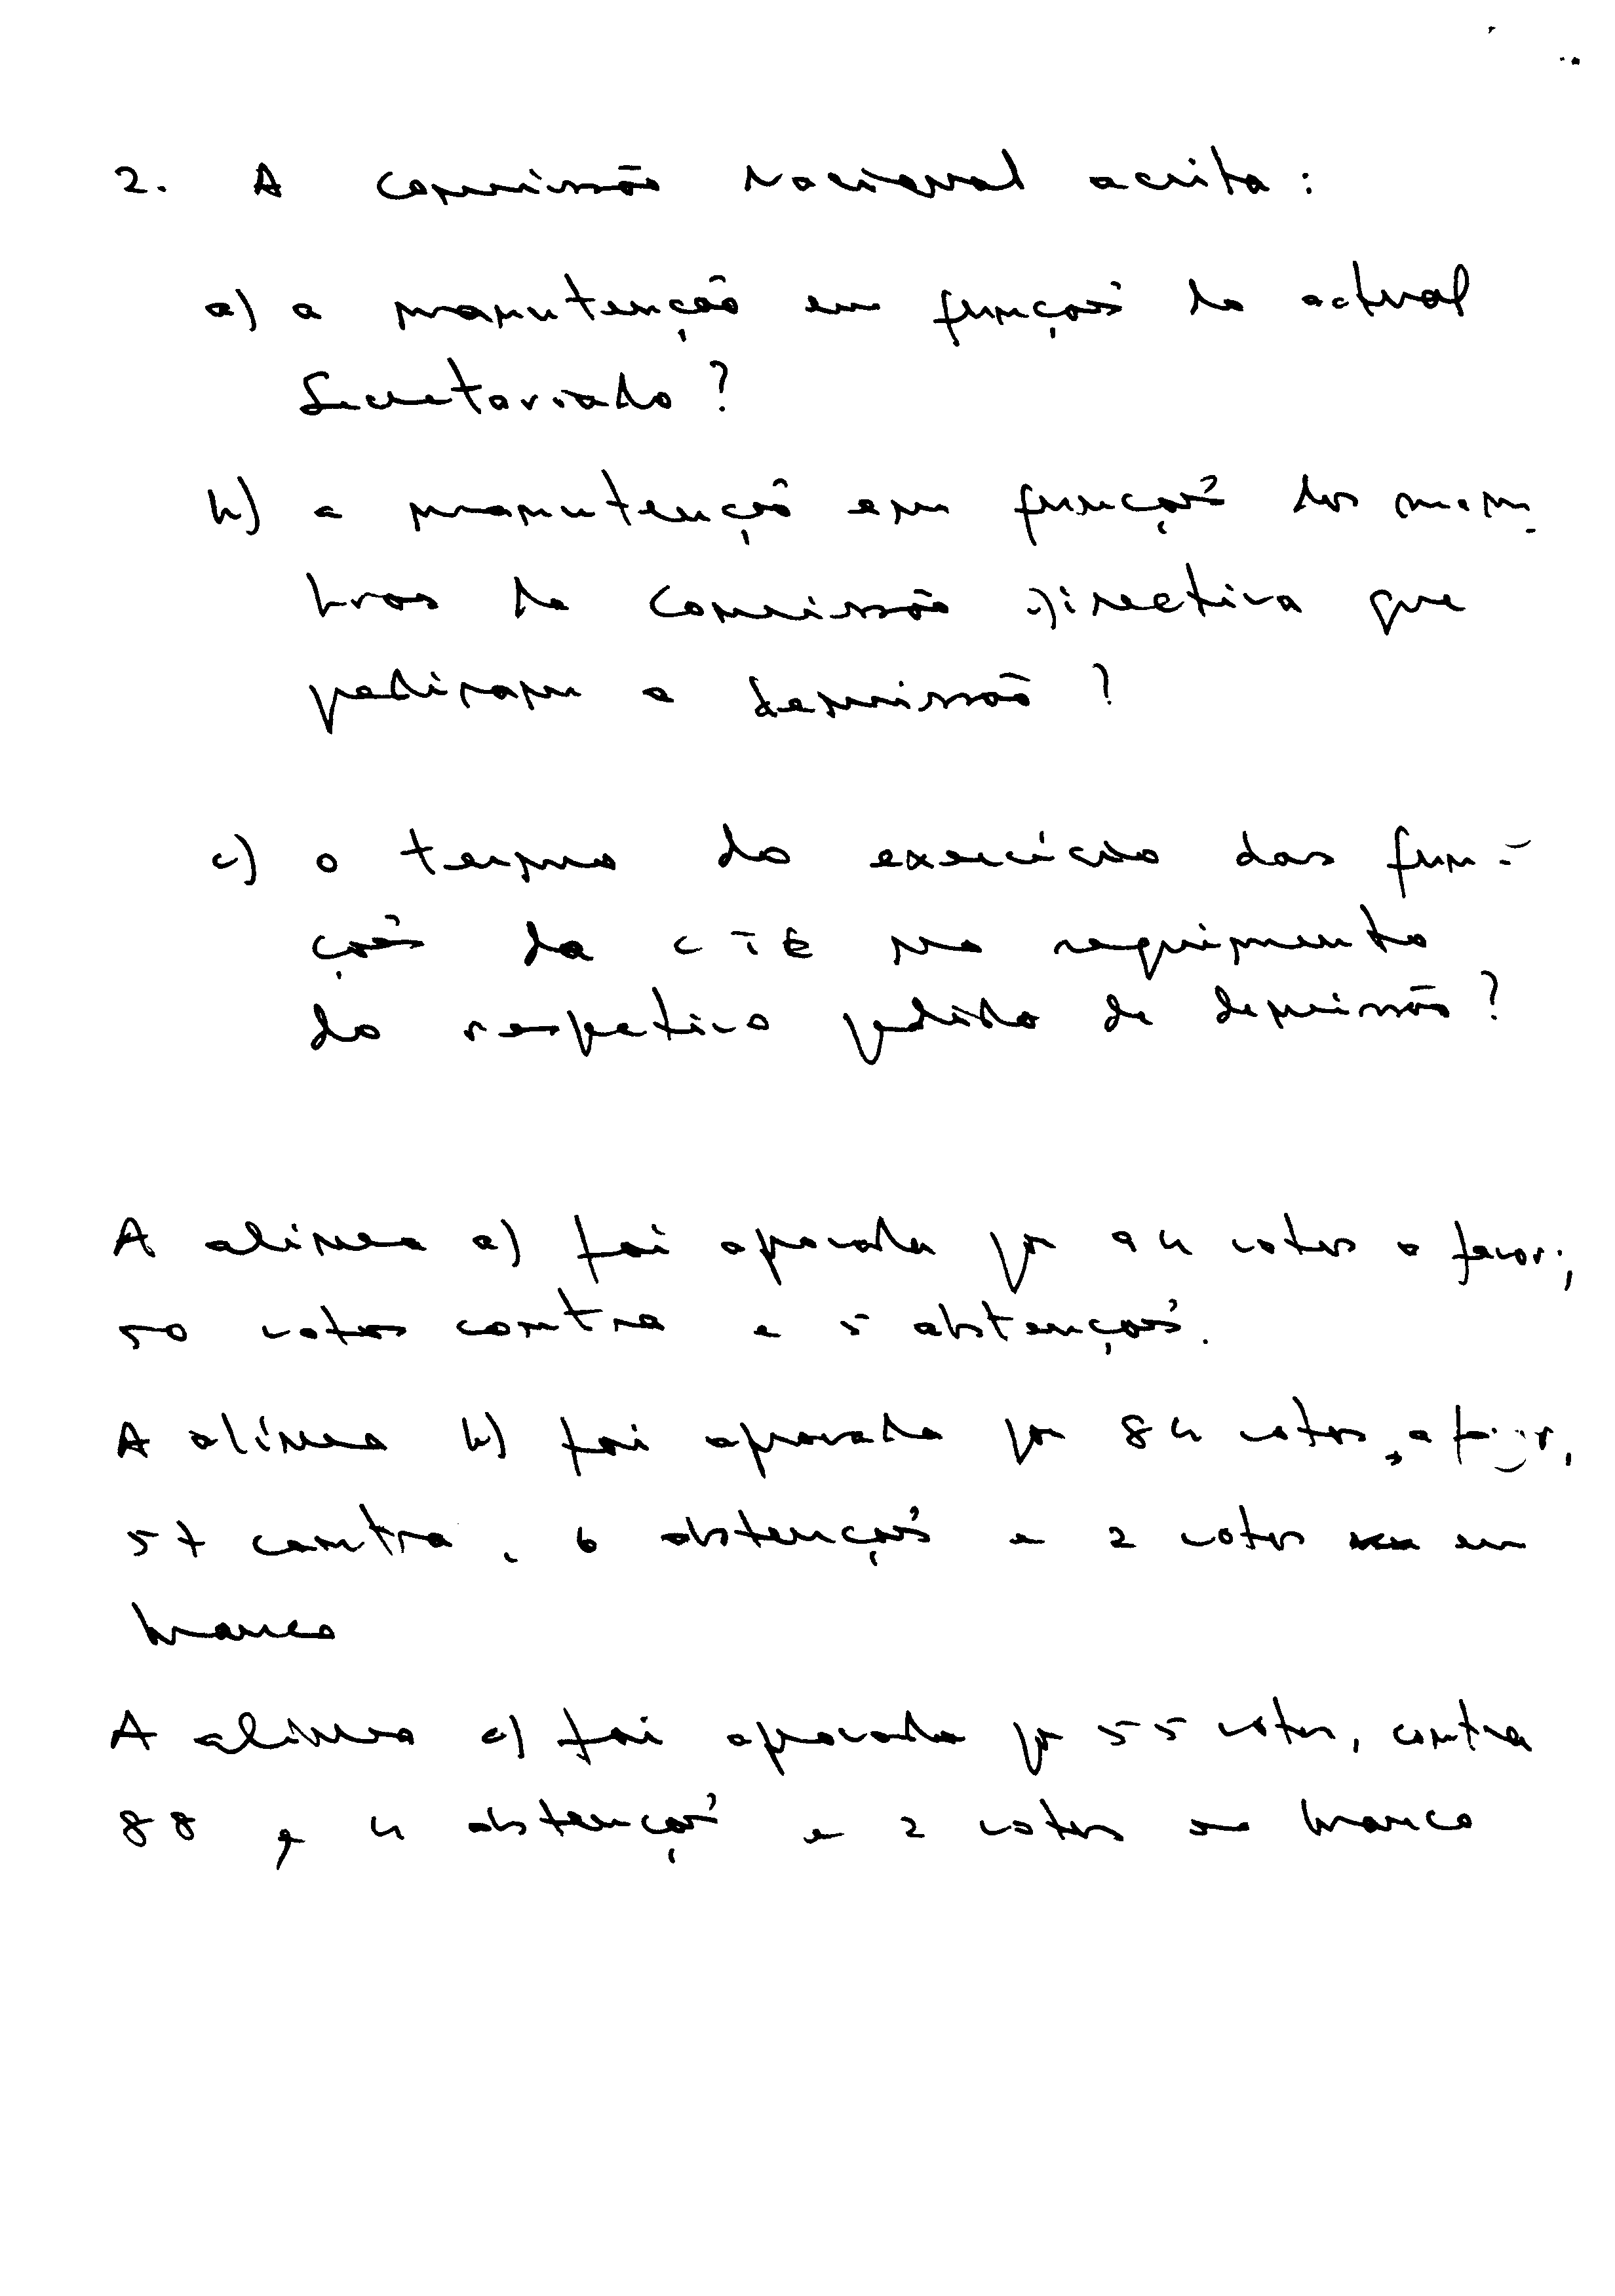 2. A Comissão Nacional aceita:
a) a manutenção em funções do actual
Secretariado?
b) a manutenção em funções dos mem-
bros da Comissão Directiva que
pediram a demissão?
c) o termo do exercício das fun-
ções da CTE no seguimento
do respetivo pedido de demissão?
A alinea a) foi aprovada por 94 votos a favor,
50 votos contra e 5 abstenções.
A alínea b) foi aprovada por 84 votos, a favor,
57 contra, 6 abstenções e 2 votos em
branco
A alinea c) foi aprovada por 55 votos, contra
88, 4 abstenções e 2 votos em branco